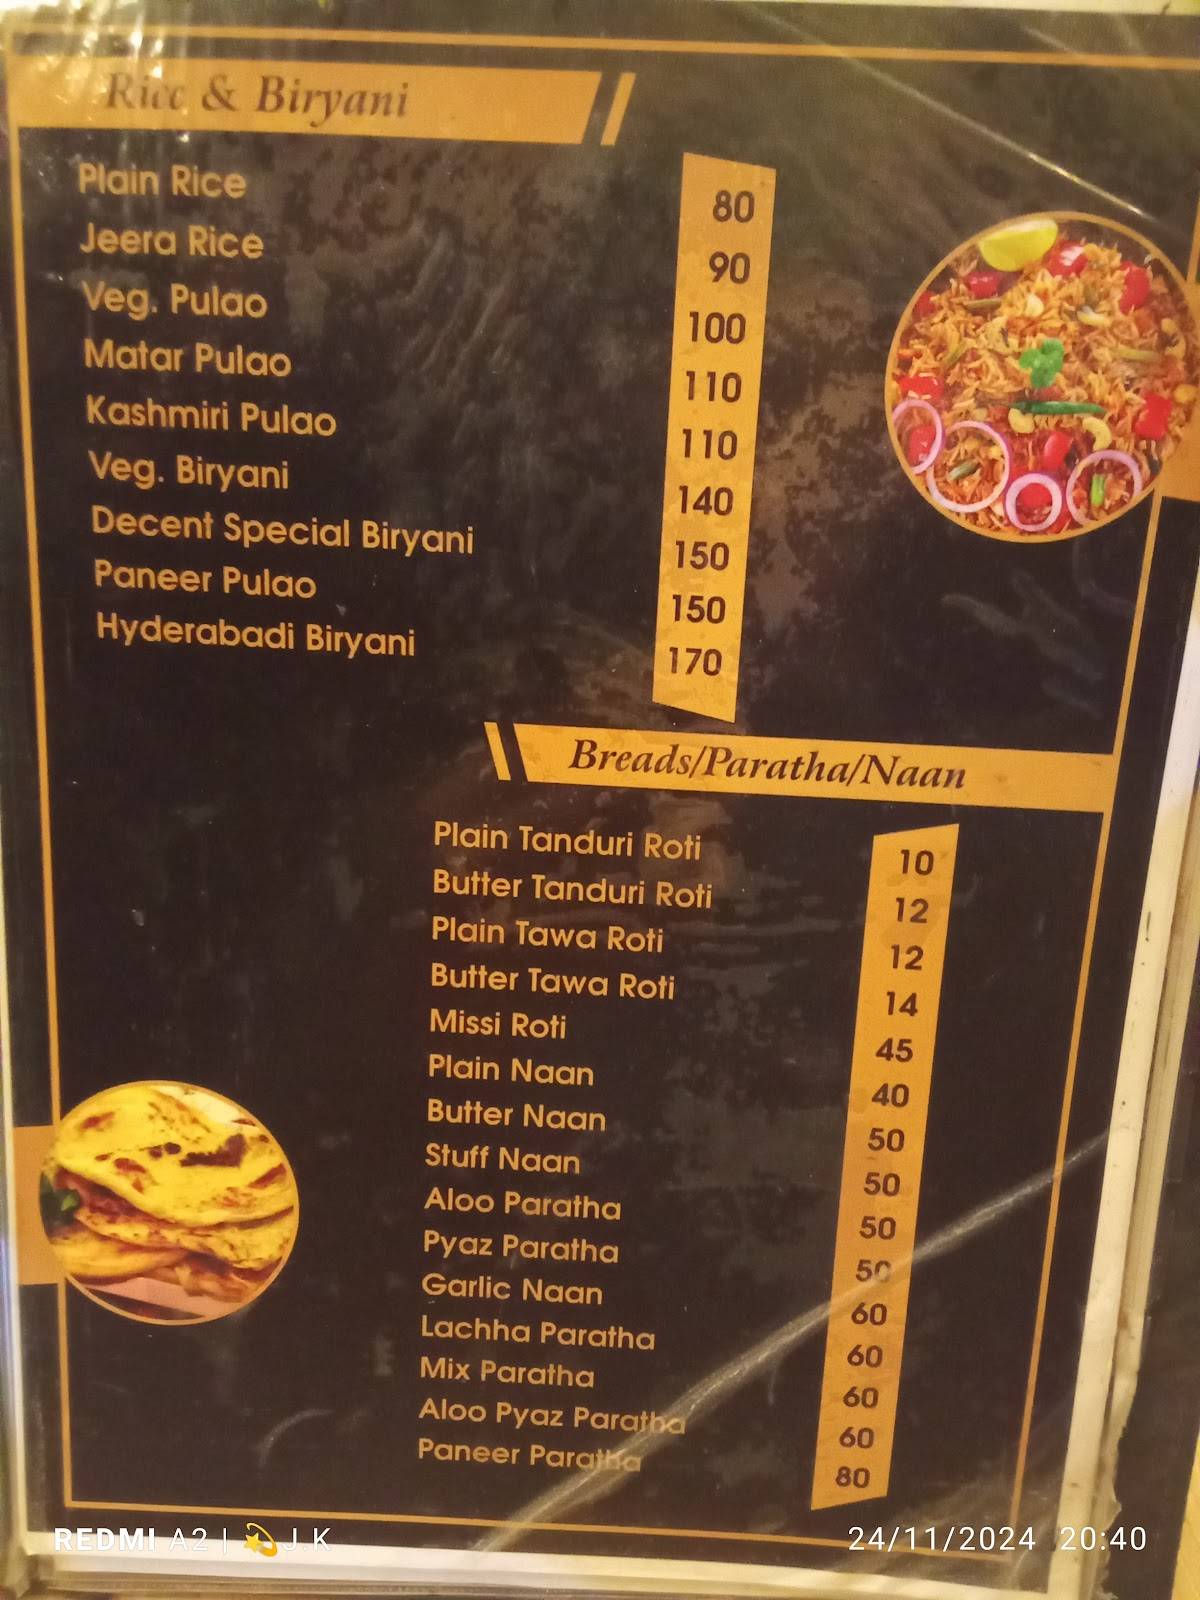 Rice & Biryani
Plain Rice 80
Jeera Rice 90
Veg. Pulao 100
Matar Pulao 110
Kashmiri Pulao 110
Veg. Biryani 140
Decent Special Biryani 150
Paneer Pulao 150
Hyderabadi Biryani 170
Breads/Paratha/Naan
Plain Tanduri Roti 10
Butter Tanduri Roti 12
Plain Tawa Roti 12
Butter Tawa Roti 14
Missi Roti 45
Plain Naan 40
Butter Naan 50
Stuff Naan 50
Aloo Paratha 50
Pyaz Paratha 50
Garlic Naan 60
Lachha Paratha 60
Mix Paratha 60
Aloo Pyaz Paratha 60
Paneer Paratha 80
REDMI A2 | 💫J.K 24/11/2024 20:40